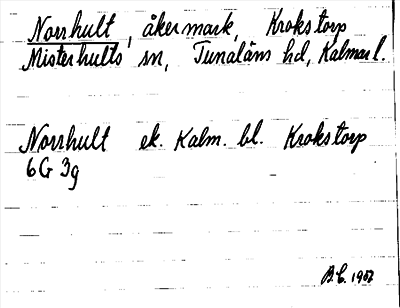 Norrhult, åkermark, Krokstorp
Misterhults sn, Tunaläns hd, Kalmar l.
Norrhult ek. Kalm. bl. Krokstorp
6G 3g
B.E. 1957